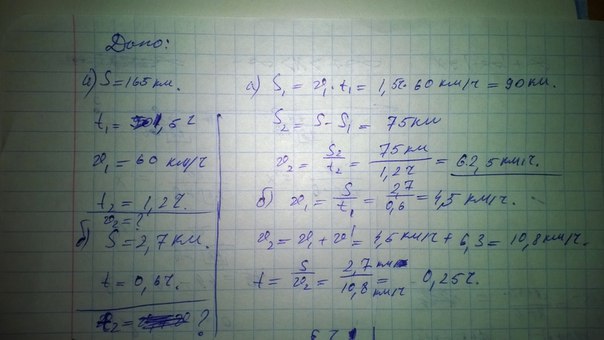 Дано:
а) S = 165 км.
t₁ = 1,5 ч
v₁ = 60 км/ч
t₂ = 1,2 ч.
v₂ = ?
б) S = 2,7 км.
t = 0,6 ч.
t₂ = ?
а) S₁ = v₁ · t₁ = 1,5ч · 60 км/ч = 90 км.
S₂ = S - S₁ = 75 км
v₂ = S₂/t₂ = 75 км/1,2 ч = 62,5 км/ч.
б) v₁ = S/t₁ = 2,7/0,6 = 4,5 км/ч.
v₂ = v₁ + v' = 4,5 км/ч + 6,3 = 10,8 км/ч.
t = S/v₂ = 2,7 км/10,8 км/ч = 0,25 ч.